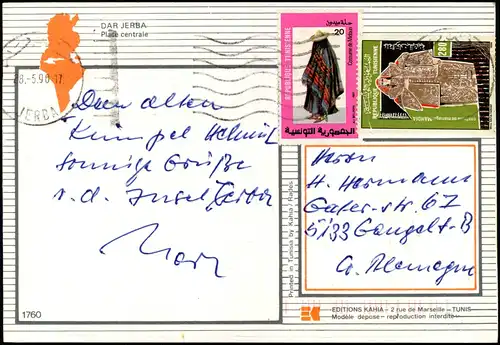 DAR JERBA
Place centrale
8.-5.90.17
JERBA
Dem alten
Kumpel Helmut
sonnige Grüße
v.d. Insel Jerba
1760
Printed in Tunisia by Kahia / Rades
20
REPUBLIQUE TUNISIENNE
الجمهورية التونسية
280
REPUBLIQUE TUNISIENNE
MAHDIA
Herrn
H. Hermann
str. 67
5133 Gangelt-B
EDITIONS KAHIA - 2 rue de Marseille - TUNIS
Modèle déposé - reproduction interdite